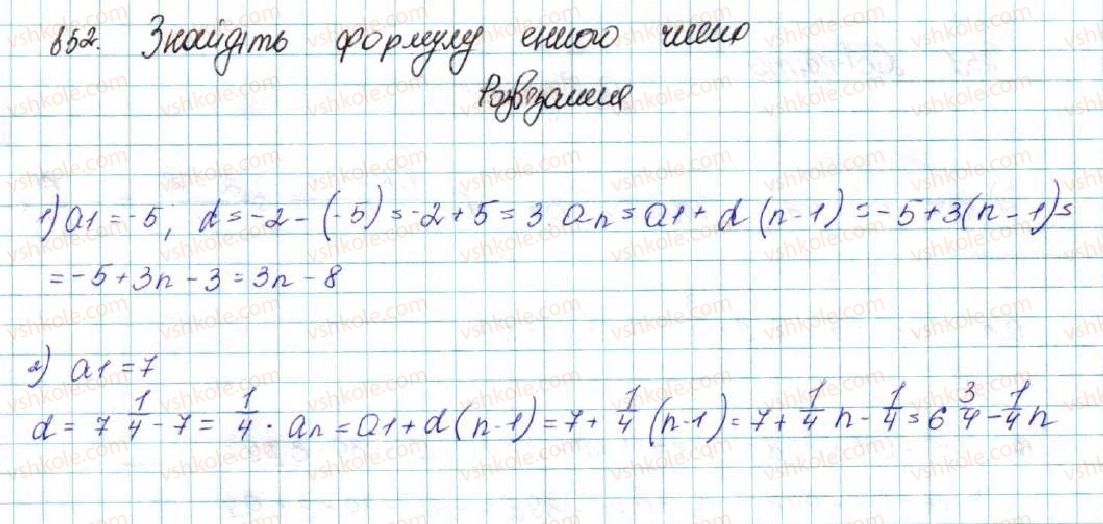 852. Знайдіть формулу енного члена
Розв'язання
1) a1 = -5; d = -2 - (-5) = -2 + 5 = 3. an = a1 + d (n-1) = -5 + 3(n-1) =
= -5 + 3n - 3 = 3n - 8
2) a1 = 7
d = 7 1/4 - 7 = 1/4. an = a1 + d (n-1) = 7 + 1/4 (n-1) = 7 + 1/4 n - 1/4 = 6 3/4 - 1/4 n